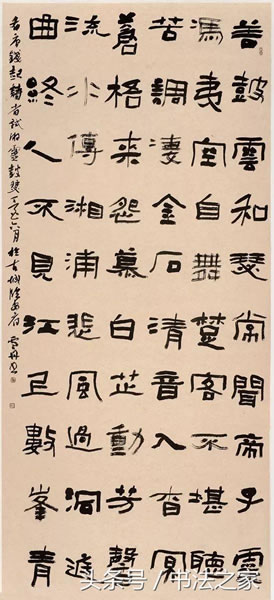 善鼓雲和瑟常聞帝子靈
馮夷空自舞楚客不堪聽
苦調淒金石清音入杳冥
蒼梧来怨慕白芷動芳馨
流水傳湘浦悲風過洞庭
曲終人不見江上數峯青
錢起詩省試湘靈鼓瑟 六月 於古城
头条号 / 书法之家